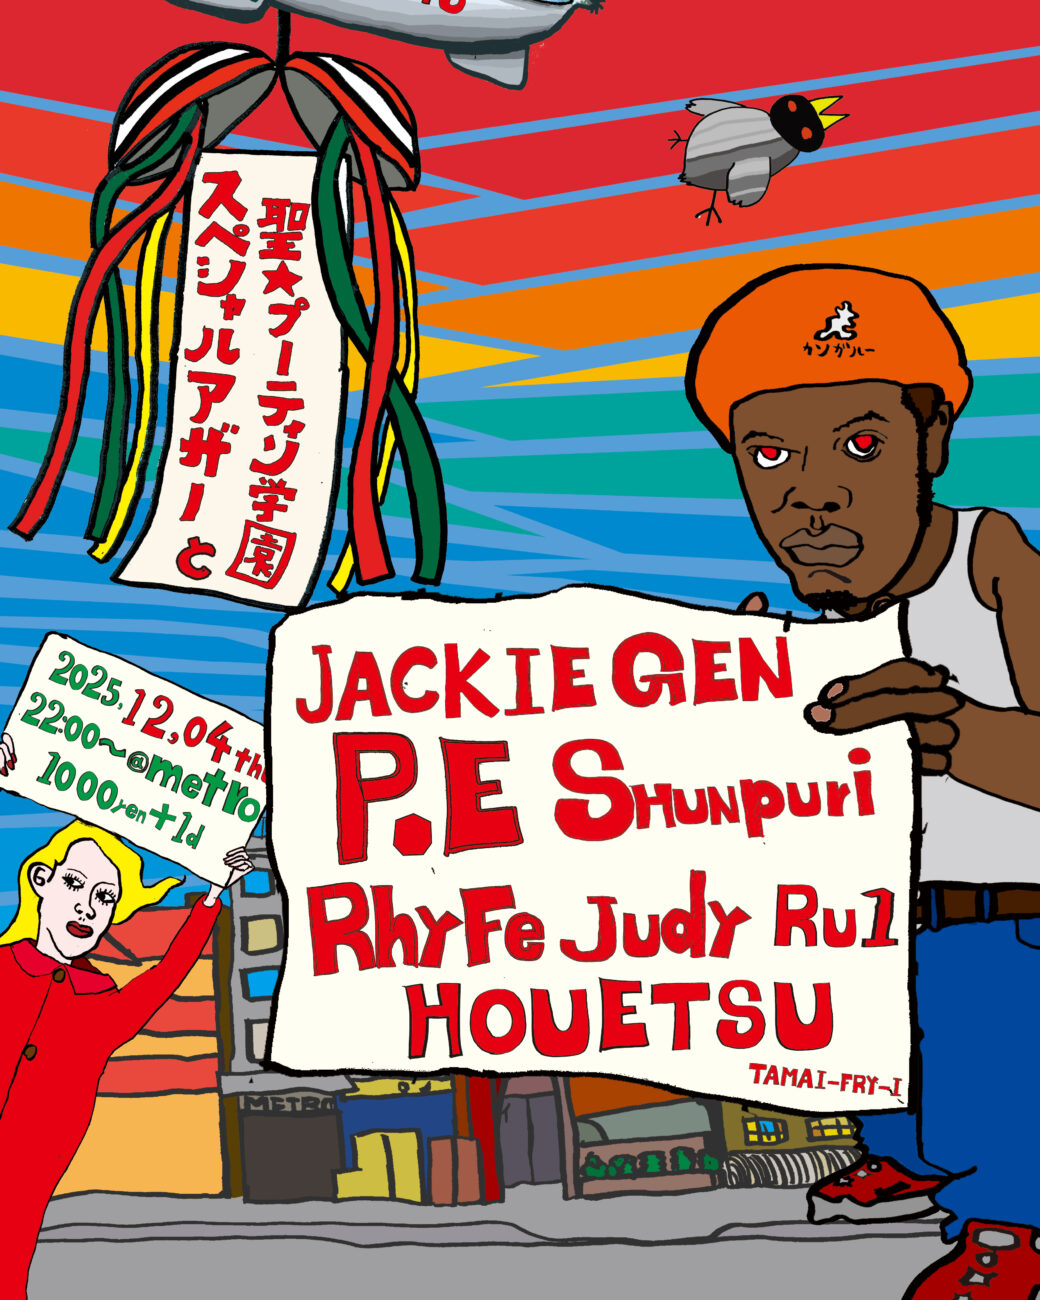 聖★プーティン学園
スペシャルアザーと
カンガルー
2025.12,04th
22:00～@metro
1000yen+1d
JACKIE GEN
P.E Shunpuri
RhyFe Judy Ru1
HOUETSU
TAMAI-FRY-I
METRO